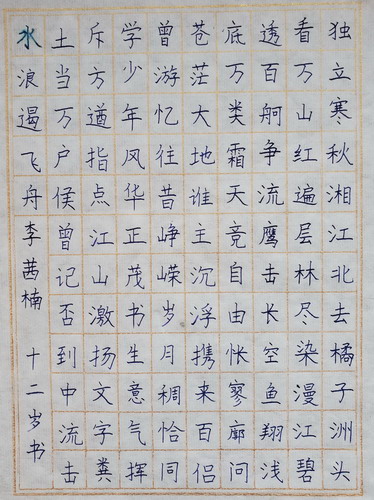 独立寒秋湘江北去橘子洲头
看万山红遍层林尽染漫江碧
透百舸争流鹰击长空鱼翔浅
底万类霜天竞自由怅寥廓问
苍茫大地谁主沉浮携来百侣
曾游忆往昔峥嵘岁月稠恰同
学少年风华正茂书生意气挥
斥方遒指点江山激扬文字粪
土当万户侯曾记否到中流击
水浪遏飞舟李茜楠 十二岁书